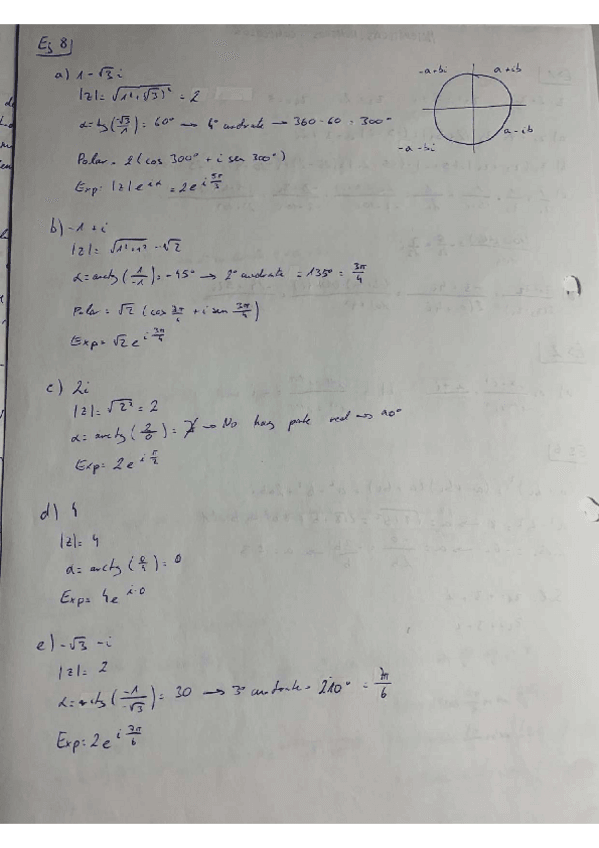 Ej 8)
-a+bi a+ib
-a-bi a-ib
a) 1-√3 i
|z|= √(1²+√3)² = 2
α=tg(-√3/1) = 60° → 4º cuadrate → 360-60 = 300°
Polar = 2(cos 300° + i sen 300°)
Exp: |z| e^iα = 2e^i5π/3
b) -1+i
|z|= √1²+1² = √2
α=arctg(1/-1) = -45° → 2º cuadrate = 135° = 3π/4
Polar = √2 (cos 3π/4 + i sen 3π/4)
Exp= √2 e^i3π/4
c) 2i
|z|= √2² = 2
α=arctg(2/0) = ∄ → No hay parte real → 90°
Exp= 2e^iπ/2
d) 4
|z|= 4
α= arctg(0/4) = 0
Exp= 4e^i·0
e) -√3 -i
|z|= 2
α=arctg(-1/-√3) = 30 → 3º cuadrate = 210° = 7π/6
Exp= 2e^i7π/6